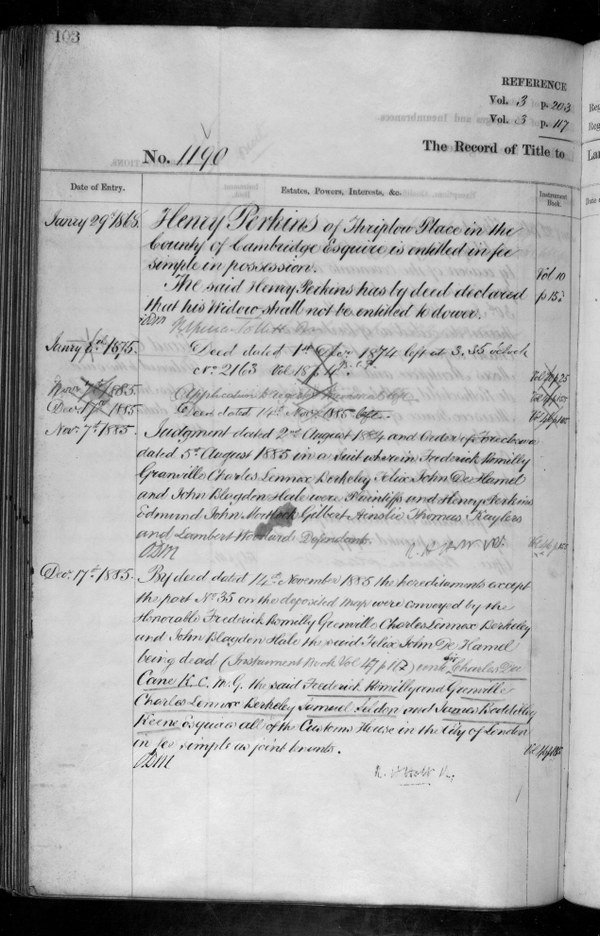 103
REFERENCE
Vol. 3 p. 203
Vol. 3 p. 117
No. 1190
The Record of Title to
Date of Entry.
Estates, Powers, Interests, &c.
Instrument Book.
Janry 29th 1868.
Henry Perkins of Thriplow Place in the
County of Cambridge Esquire is entitled in fee
simple in possession.
Vol 10
The said Henry Perkins has by deed declared
that his Widow shall not be entitled to dower.
Janry 1875.
Deed dated 1st Decr 1874 left at 3.35 o'clock
No. 2163 Vol 18 p
Novr 7th 1885.
Application to register
Decr 17th 1885
Deed dated 14th Novr 1885 left
Nov. 7th 1885.
Judgment dated 2nd August 1884 and Order of Foreclosure
dated 5th August 1885 in a Suit wherein Frederick Romilly
Granville Charles Lennox Berkeley Felix John De Hamel
and John Blagden Hale were Plaintiffs and Henry Perkins
Edmund John Mortlock Gilbert Ainslie Thomas
and Lambert Defendants.
Decr. 17th 1885.
By deed dated 14th November 1885 the hereditaments except
the part No. 35 on the deposited Map were conveyed by the
Honorable Frederick Romilly Grenville Charles Lennox Berkeley
and John Blagden Hale the said Felix John De Hamel
being dead (Instrument Book Vol 47 p 112) unto Sir Charles Du
Cane K. C. M. G. the said Frederick Romilly and Grenville
Charles Lennox Berkeley and James Boddeley
Keene Esquires all of the Customs House in the City of London
in fee simple as joint tenants.